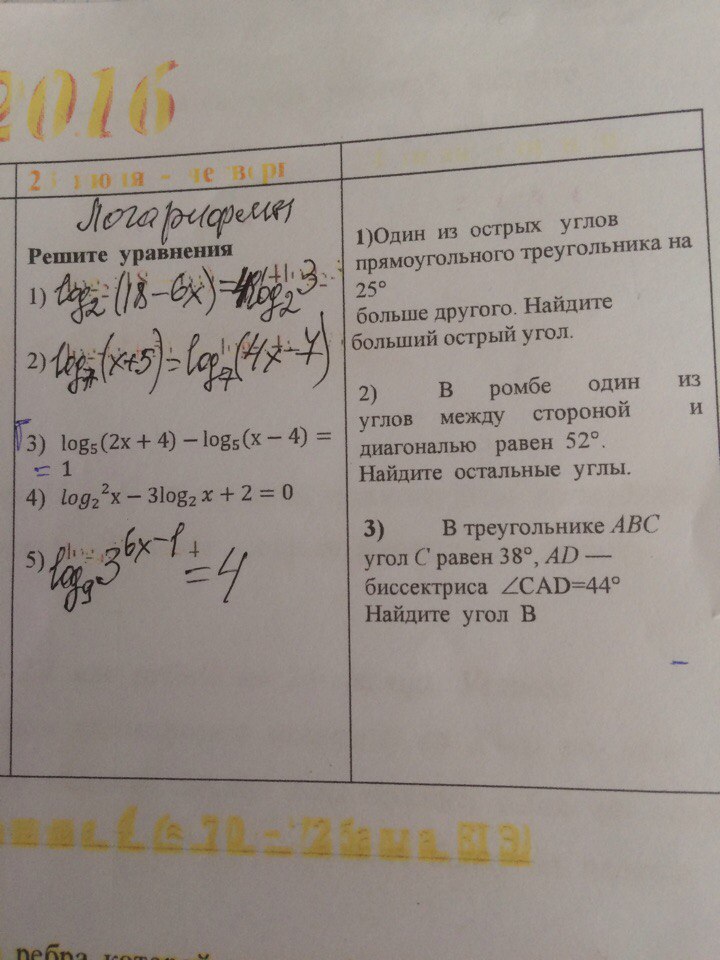 2016
23 июня - четверг
Логарифмы
Решите уравнения
1) log₂(18-6x)=4log₂3
2) log₇(x+5)=log₇(4x-7)
3) log₅(2x + 4) − log₅(x − 4) =
= 1
4) log₂²x − 3log₂ x + 2 = 0
5) log₉3^(6x-1) = 4
1)Один из острых углов
прямоугольного треугольника на
25°
больше другого. Найдите
больший острый угол.
2) В ромбе один из
углов между стороной и
диагональю равен 52°.
Найдите остальные углы.
3) В треугольнике ABC
угол C равен 38°, AD —
биссектриса ∠CAD=44°
Найдите угол В
ребра которой